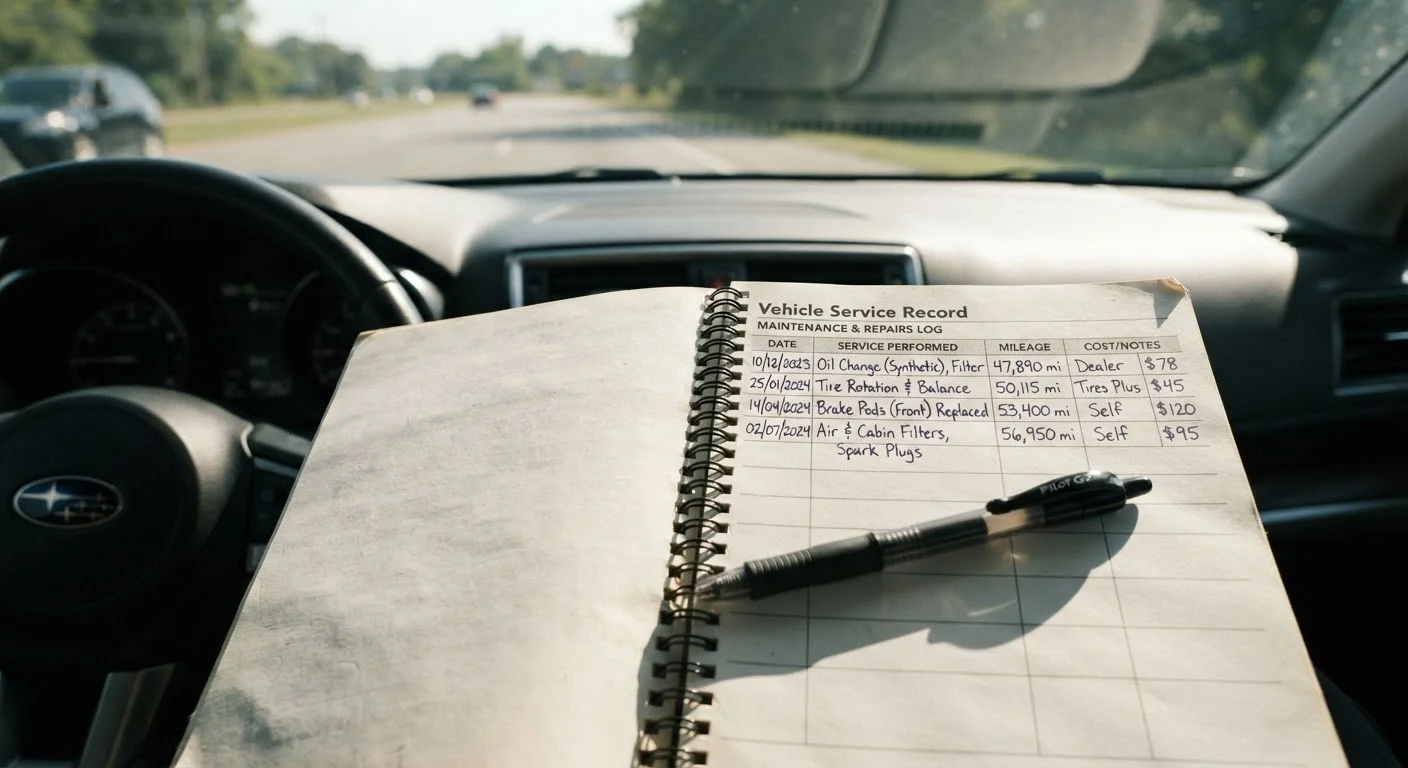 Vehicle Service Record
MAINTENANCE & REPAIRS LOG
DATE SERVICE PERFORMED MILEAGE COST/NOTES
10/12/2023 Oil Change (Synthetic), Filter 47,890 mi Dealer $78
25/01/2024 Tire Rotation & Balance 50,115 mi Tires Plus $45
14/04/2024 Brake Pads (Front) Replaced 53,400 mi Self $120
02/07/2024 Air & Cabin Filters, 56,950 mi Self $95
Spark Plugs
PILOT G2